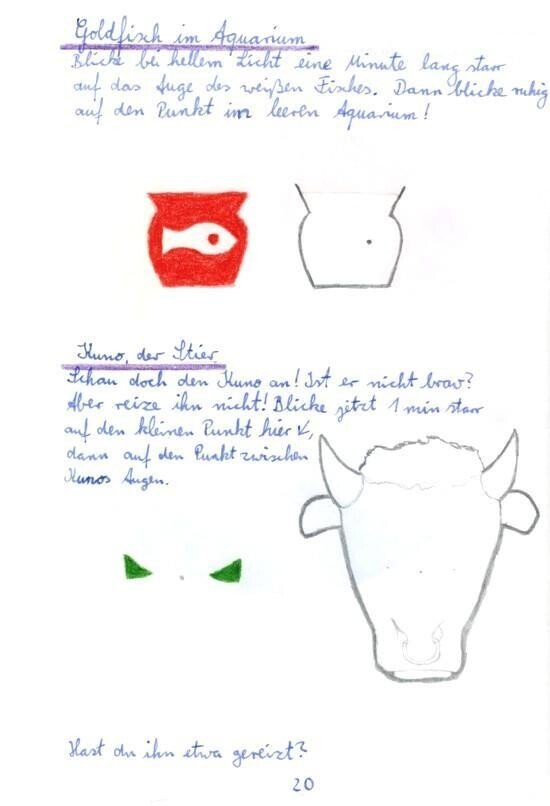 Goldfisch im Aquarium
Blicke bei hellem Licht eine Minute lang starr
auf das Auge des weißen Fisches. Dann blicke ruhig
auf den Punkt im leeren Aquarium!
Kuno, der Stier
Schau doch den Kuno an! Ist er nicht brav?
Aber reize ihn nicht! Blicke jetzt 1 min starr
auf den kleinen Punkt hier ↙,
dann auf den Punkt zwischen
Kunos Augen.
Hast du ihn etwa gereizt?
20